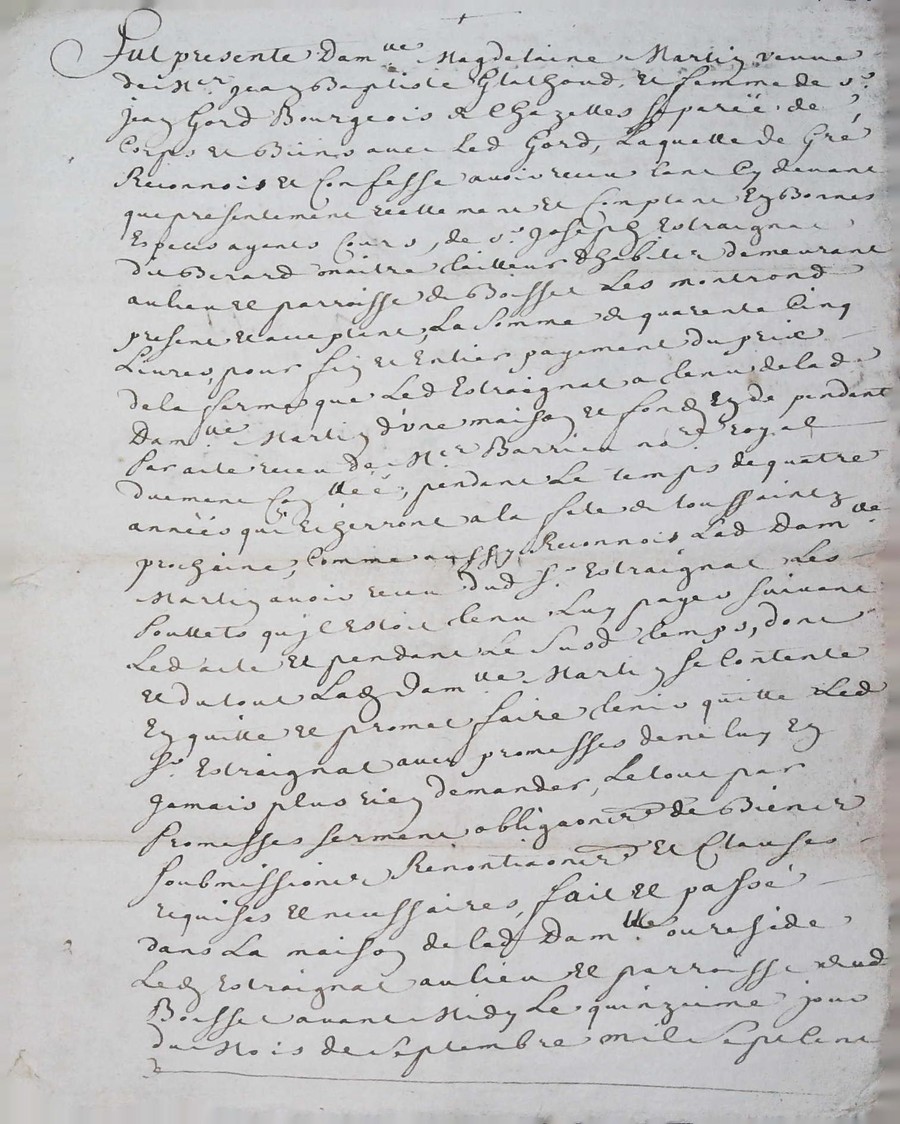 Fut presente Dam.lle Magdelaine Martin veuve
de M.er jean Baptiste Glathoud, et femme de s.r
jean Gord Bourgeois de Chazettes separéé de
Corps et Biens avec Led Gord, Laquelle de Gré
Reconnois et Confesse avoir receu tant Cy devant
que presentement réellement et Comptant En Bonnes
Especes ayants Cours, de s.r joseph Estraignat
dit Berard maitre tailleur d'habits demeurant
au lieu et parroisse de Boisset Les montrond
present et acceptant, La somme de quarente Cinq
Livres, pour fin et Entier payement du prix
de la ferme que Led Estraignat a tenu de lad
Dam.lle Martin d'une maison et fonds En dependant
Par acte receu de M.er Barrieu no.re royal
duement Con.lléé, pendant Le temps de quatre
annéés qui Echerront a la fete de toussaintz
prochaine, Comme aussy Reconnois Lad Dam.lle
Martin avoir receu dud s.r Estraignat Les
Poullets qu'jl Estoit tenu Luy payer suivant
Led acte et pendant Le susd temps, dont
et du tout Lad Dam.lle Martin se Contente
En quitte et promet faire tenir quitte Led
s.r Estraignat avec promesses de ne luy En
jamais plus rien demander, Le tout par
Promesses serment obligaons de Biens
soubmissions Renontiaons et Clauses
requises et necessaires, fait et passé
dans La maison de lad Dam.lle ou reside
Led Estraignat au lieu et parroisse dud
Boisset avant Midy Le quinzieme jour
du Mois de septembre mil sept Cent